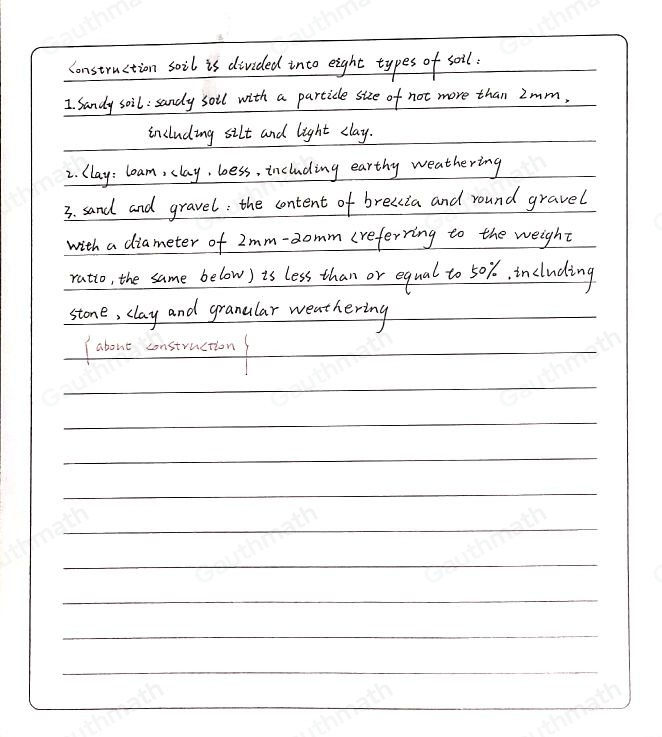 Construction soil is divided into eight types of soil:
1. Sandy soil: sandy soil with a particle size of not more than 2mm,
including silt and light clay.
2. Clay: loam, clay, loess, including earthy weathering
3. sand and gravel: the content of breccia and round gravel
with a diameter of 2mm-20mm (referring to the weight
ratio, the same below) is less than or equal to 50%, including
stone, clay and granular weathering
{about construction}
Gauthmath